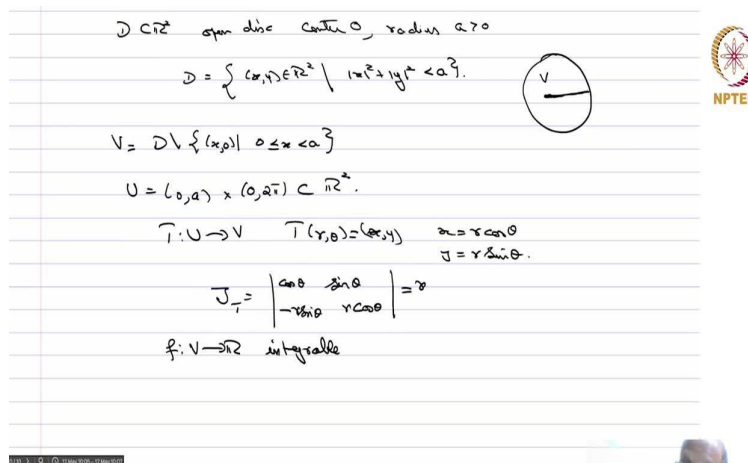 D ⊂ ℝ² open disc centre 0, radius a>0
D = { (x,y) ∈ ℝ² | |x|² + |y|² < a }.
V
NPTEL
V = D \ { (x,0) | 0 ≤ x < a }
U = (0,a) × (0,2π) ⊂ ℝ².
T: U → V T(r,θ) = (x,y) x = r cos θ
y = r sin θ.
J_T = | cos θ sin θ | = r
| -r sin θ r cos θ |
f: V → ℝ integrable